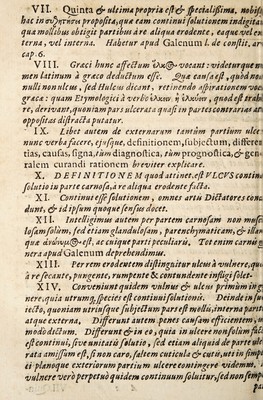 VII. Quinta & ultima propria est & specialissima, nobis
hac in συζητήσει proposita, quæ eam continui solutionem indigitat
quas modis obtigit partibus à re aliqua erodente, eaque vel ex-
terna, vel interna. Habetur apud Galenum l. de constit. ar
cap. 6.
VIII. Græci hunc affectum ἕλκος vocant: videtur que
men latinum à græco deductum esse. Quæ causa est, quod non
nulli non ulcus, sed Hulcus dicant, retinendo aspirationem voc
græcæ: quam Etymologici à verbo ἕλκω ἢ ἑλκύω, quod est trah
re, derivant, quoniam pars ulcerata quasi in partes contrarias at
oppositas distracta putatur.
IX. Libet autem de externarum tantùm partium ulcer
nunc verba facere, ejusque, definitionem, subjectum, differen
tias, causas, signa, tùm diagnostica, tùm prognostica, & gen
ralem curandi rationem breviter explicare.
X. DEFINITIONEM quod attinet. est VLCVS contin
solutio in parte carnosa, à re aliqua erodente facta.
XI. Continui esse solutionem, omnes artis Dictatores conc
dunt, & id ipsum quoque sensus docet.
XII. Intelligimus autem per partem carnosam non mus
losam solùm, sed etiam glandulosam, parenchymaticam, & illam
quæ ἀνώνυμος est, ac cuique parti peculiaris. Tot enim carnis
nera apud Galenum deprehendimus.
XIII. Per rem erodentem distinguitur ulcus à vulnere, qu
à re secante, pungente, rumpente & contundente infligi solet.
XIV. Conveniunt quidem vulnus & ulcus primùm in g
nere, quia utrumq; species est continui solutionis. Deinde in su
jecto, quoniam utriusque subjectum pars est mollis, interna pari
atque externa. Differunt autem penes causam efficientem,
modo dictum. Differunt & in eo, quia in ulcere non solùm fact
est continui, sive unitatis solutio, sed etiam aliquid de parte ulce
rata amissum est, si non caro, saltem cuticula & cutis, uti in simp
ei planoque exteriorum partium ulcere contingere videmus.
vulnere verò perpetuò quidem continuum solvitur, sed non semp